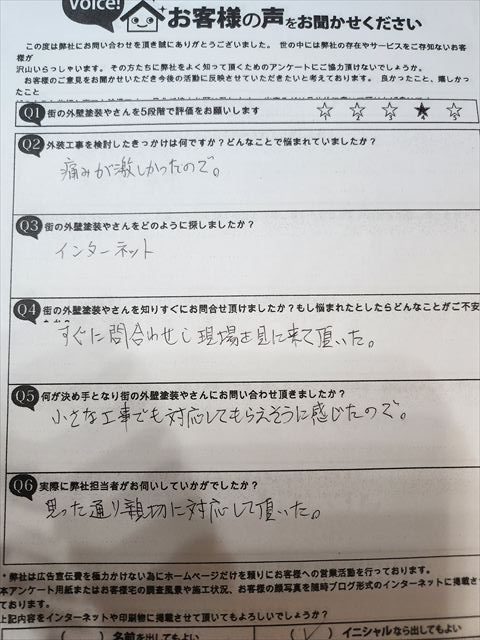 Voice!
お客様の声をお聞かせください
この度は弊社にお問い合わせを頂き誠にありがとうございました。 世の中には弊社の存在やサービスをご存知ないお客様が
沢山いらっしゃいます。 その方たちに弊社をよく知って頂くためのアンケートにご協力頂けないでしょうか。
お客様のご意見をお聞かせいただき今後の活動に反映させていただきたいと考えております。 良かったこと、嬉しかったこと
Q1 街の外壁塗装やさんを5段階で評価をお願いします
Q2 外装工事を検討したきっかけは何ですか？どんなことで悩まれていましたか？
痛みが激しかったので。
Q3 街の外壁塗装やさんをどのように探しましたか？
インターネット
Q4 街の外壁塗装やさんを知りすぐにお問合せ頂けましたか？もし悩まれたとしたらどんなことがご不安
すぐに問合わせし現場を見に来て頂いた。
Q5 何が決め手となり街の外壁塗装やさんにお問い合わせ頂きましたか？
小さな工事でも対応してもらえそうに感じたので。
Q6 実際に弊社担当者がお伺いしていかがでしたか？
思った通り親切に対応して頂いた。
* 弊社は広告宣伝費を極力かけない為にホームページだけを頼りにお客様への営業活動を行っております。
本アンケート用紙またはお客様宅の調査風景や施工状況、お客様の顔写真を随時ブログ形式のインターネットに掲載させ
ております。
上記内容をインターネットや印刷物に掲載させて頂いてもよろしいでしょうか？
( ) 名前を出してもよい ( ✓ ) イニシャルなら出してもよい